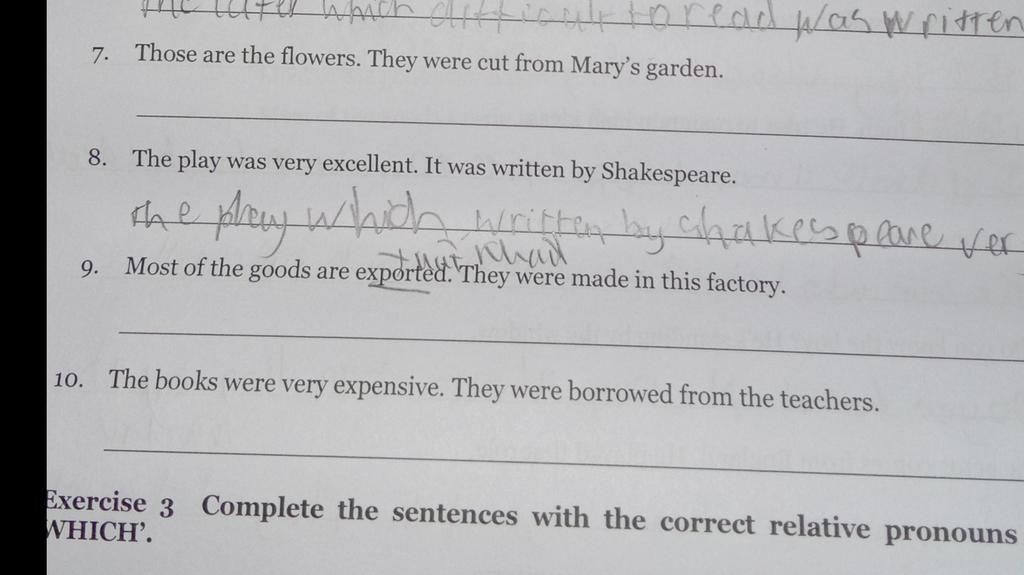 the later which difficult to read was written
7. Those are the flowers. They were cut from Mary's garden.
8. The play was very excellent. It was written by Shakespeare.
the play which written by shakespeare ver
9. Most of the goods are exported. They were made in this factory.
10. The books were very expensive. They were borrowed from the teachers.
Exercise 3 Complete the sentences with the correct relative pronouns
WHICH'.